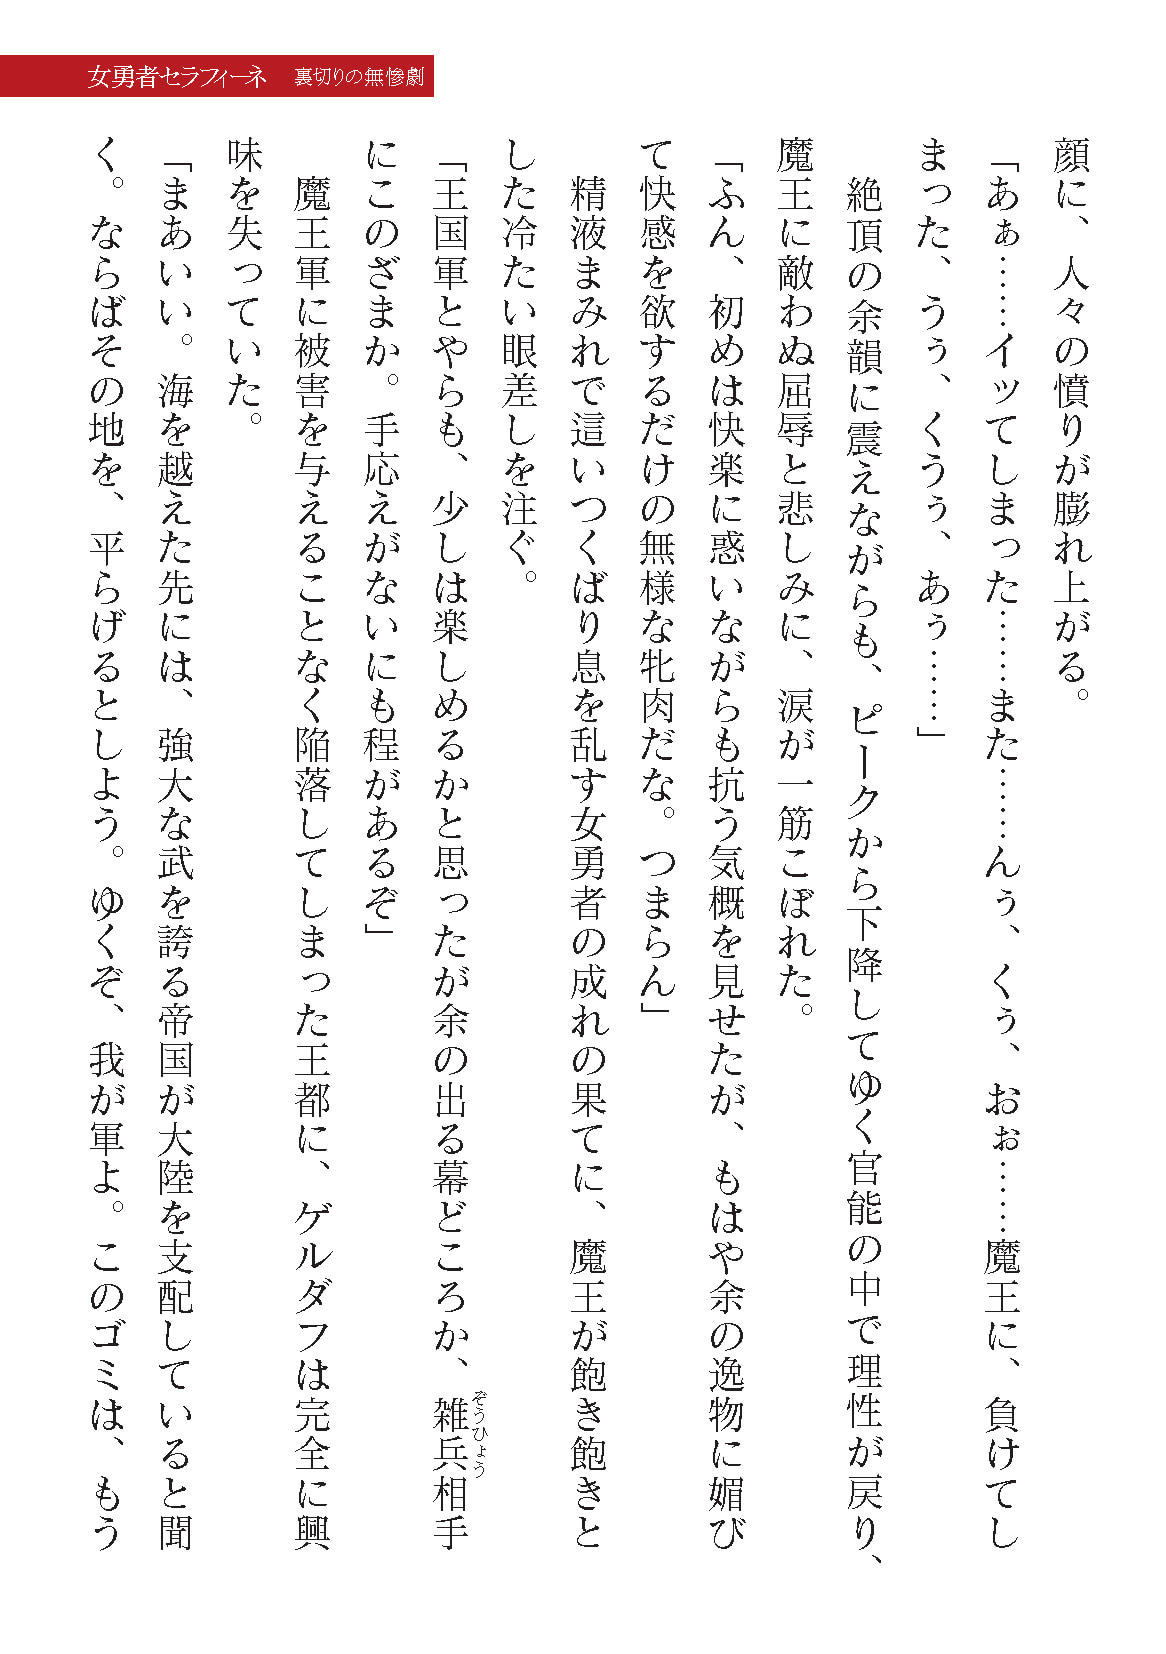 女勇者セラフィーネ　裏切りの無惨劇
顔に、人々の憤りが膨れ上がる。
「あぁ……イッてしまった……また……んぅ、くぅ、おぉ……魔王に、負けてし
まった、うぅ、くうぅ、あぅ……」
絶頂の余韻に震えながらも、ピークから下降してゆく官能の中で理性が戻り、
魔王に敵わぬ屈辱と悲しみに、涙が一筋こぼれた。
「ふん、初めは快楽に惑いながらも抗う気概を見せたが、もはや余の逸物に媚び
て快感を欲するだけの無様な牝肉だな。つまらん」
精液まみれで這いつくばり息を乱す女勇者の成れの果てに、魔王が飽き飽きと
した冷たい眼差しを注ぐ。
「王国軍とやらも、少しは楽しめるかと思ったが余の出る幕どころか、雑兵相手
ぞうひょう
にこのざまか。手応えがないにも程があるぞ」
魔王軍に被害を与えることなく陥落してしまった王都に、ゲルダフは完全に興
味を失っていた。
「まあいい。海を越えた先には、強大な武を誇る帝国が大陸を支配していると聞
く。ならばその地を、平らげるとしよう。ゆくぞ、我が軍よ。このゴミは、もう